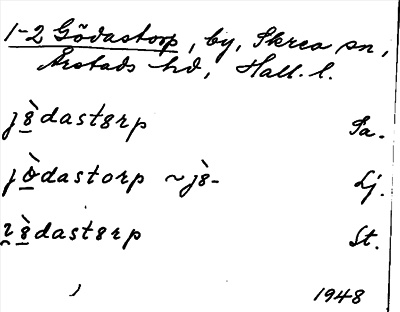 1-2 Gödastorp, by, Skrea sn,
Årstads hd, Hall. l.
jö̀dastørp Sa.
jò̱dastorp ~ jö̀- Lj.
St.
1948